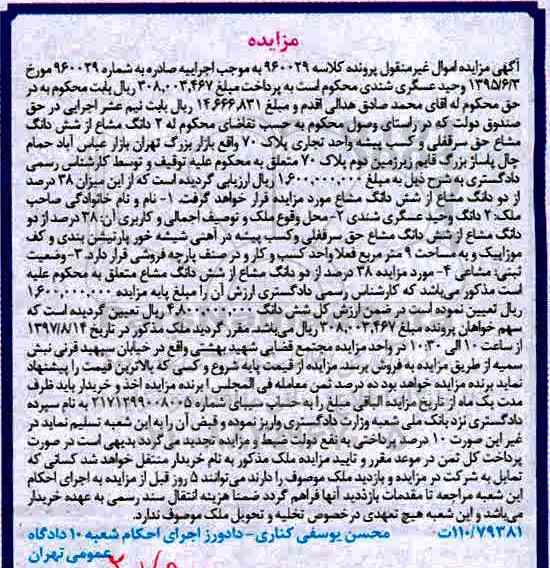 مزایده
آگهی مزایده اموال غیرمنقول پرونده کلاسه ۹۶۰۰۲۹ به موجب اجراییه صادره به شماره ۹۶۰۰۲۹ مورخ
۱۳۹۵/۶/۳ وحید عسگری شندی محکوم است به پرداخت مبلغ ۳۰۸,۰۰۳,۴۶۷ ریال بابت محکوم به در
حق محکوم له اقای محمد صادق هدالی اقدم و مبلغ ۱۴,۶۶۶,۸۳۱ ریال بابت نیم عشر اجرایی در حق
صندوق دولت که در راستای وصول محکوم به حسب تقاضای محکوم له ۲ دانگ مشاع از شش دانگ
مشاع حق سرقفلی و کسب پیشه واحد تجاری پلاک ۷۰ واقع بازار بزرگ تهران بازار عباس آباد حمام
چال پاساژ بزرگ قایم زیرزمین دوم پلاک ۷۰ متعلق به محکوم علیه توقیف و توسط کارشناس رسمی
دادگستری به شرح ذیل به مبلغ ۱,۶۰۰,۰۰۰,۰۰۰ ریال ارزیابی گردیده است که از این میزان ۳۸ درصد
از دو دانگ مشاع از شش دانگ مشاع مورد مزایده قرار خواهد گرفت. ۱- نام و نام خانوادگی صاحب
ملک: ۲ دانگ وحید عسگری شندی ۲- محل وقوع ملک و توصیف اجمالی و کاربری آن: ۳۸ درصد از دو
دانگ مشاع از شش دانگ مشاع حق سرقفلی وکسب پیشه در آهنی شیشه خور پارتیشن بندی و کف
موزاییک و به مساحت ۹ متر مربع فعلا واحد کسب و کار و در صنف پارچه فروشی قرار دارد. ۳- وضعیت
ثبتی: مشاعی ۴- مورد مزایده ۳۸ درصد از دو دانگ مشاع از شش دانگ مشاع متعلق به محکوم علیه
است مذکور می‌باشد که کارشناس رسمی دادگستری ارزش آن را مبلغ پایه مزایده ۱,۶۰۰,۰۰۰,۰۰۰
ریال تعیین نموده است در ضمن ارزش کل شش دانگ ۴,۸۰۰,۰۰۰,۰۰۰ ریال تعیین گردیده است که
سهم خواهان پرونده مبلغ ۳۰۸,۰۰۳,۴۶۷ ریال می‌باشد. مقرر گردید ملک مذکور در تاریخ ۱۳۹۷/۸/۱۴
از ساعت ۱۰ الی ۱۰:۳۰ در واحد مزایده مجتمع قضایی شهید بهشتی واقع در خیابان سپهبد قرنی نبش
سمیه از طریق مزایده به فروش برسد. مزایده از قیمت پایه شروع و کسی که بالاترین قیمت را پیشنهاد
نماید برنده مزایده خواهد بود ده درصد ثمن معامله فی المجلس از برنده مزایده اخذ و خریدار باید ظرف
مدت یک ماه از تاریخ مزایده الباقی مبلغ را به حساب سیبای شماره ۲۱۷۱۲۹۹۰۰۸۰۰۵ به نام سپرده
دادگستری نزد بانک ملی شعبه وزارت دادگستری واریز نموده و قبض آن را به این شعبه تسلیم نماید در
غیر این صورت ۱۰ درصد پرداختی به نفع دولت ضبط و مزایده تجدید می‌گردد بدیهی است در صورت
پرداخت کل ثمن در موعد مقرر و تایید مزایده ملک مذکور به نام خریدار منتقل خواهد شد کسانی که
تمایل به شرکت در مزایده و بازدید ملک موصوف را دارند می‌توانند ۵ روز قبل از مزایده به اجرای احکام
این شعبه مراجعه تا مقدمات بازدید آنها فراهم گردد ضمنا هزینه انتقال سند رسمی به عهده خریدار
می‌باشد و این شعبه هیچ تعهدی در خصوص تخلیه و تحویل ملک موصوف ندارد.
۱۱۰/۷۹۳۸۱ت محسن یوسفی کناری - دادورز اجرای احکام شعبه ۱۰ دادگاه
عمومی تهران